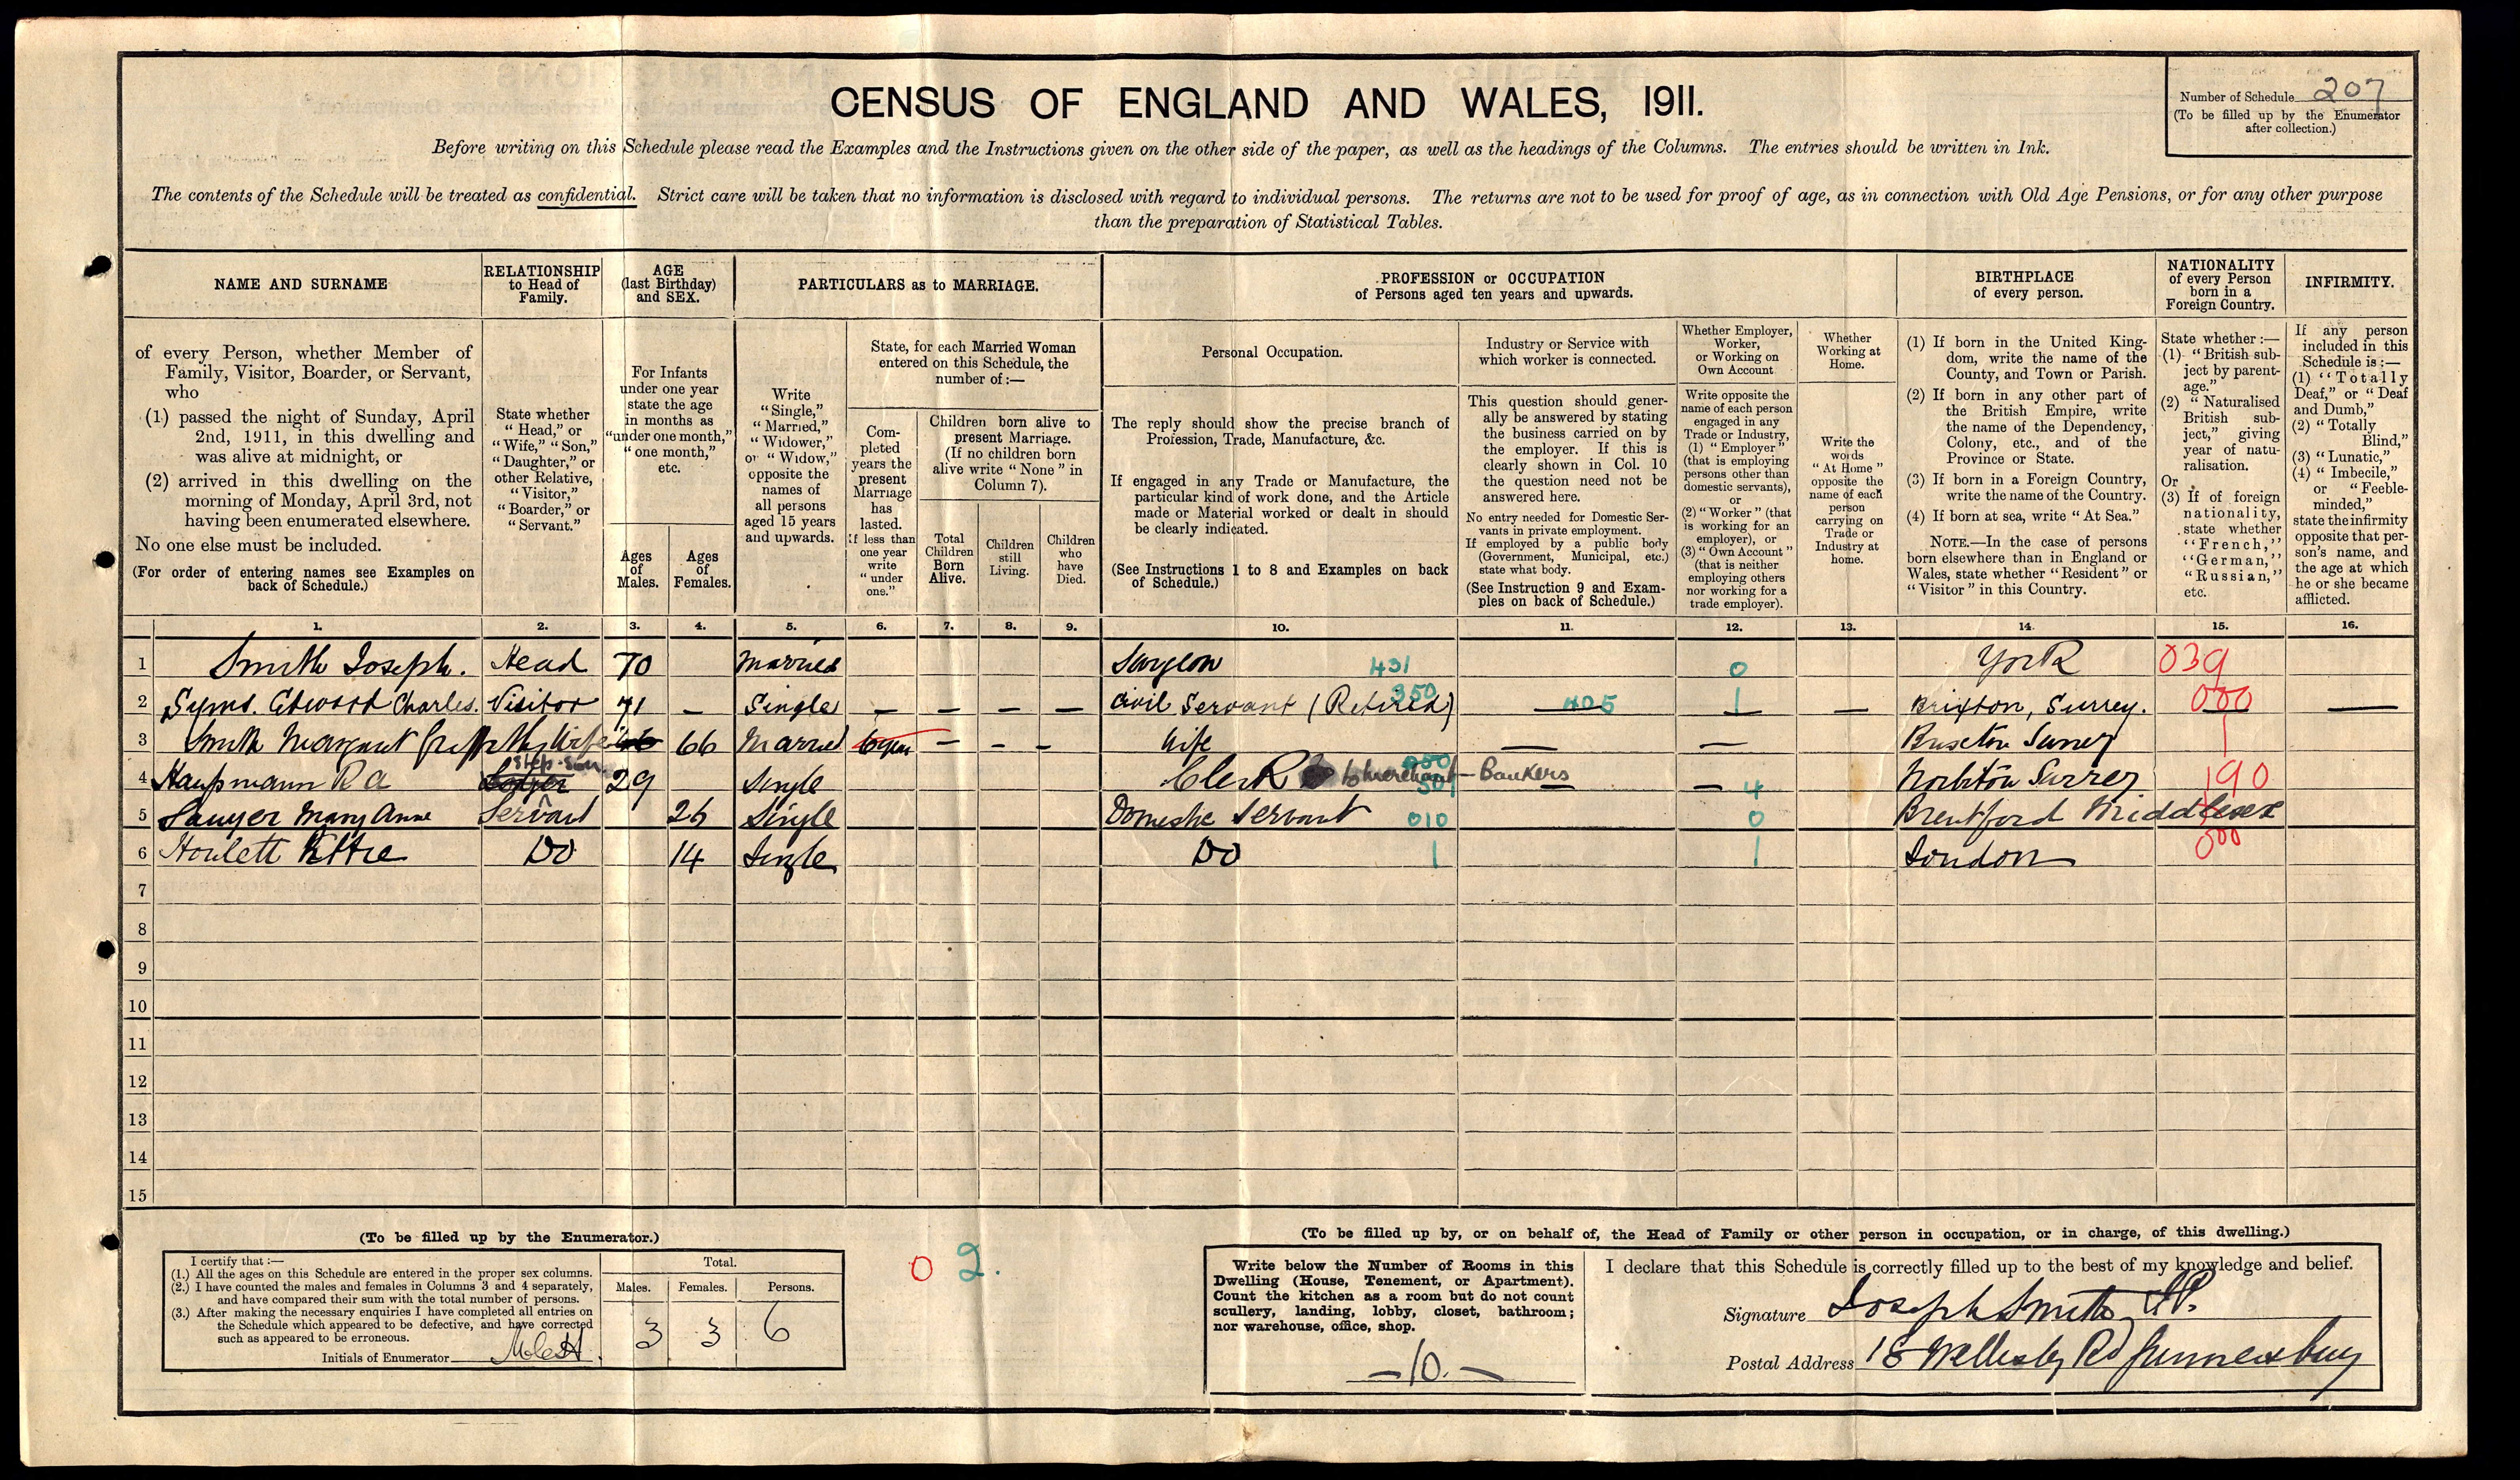 CENSUS OF ENGLAND AND WALES, 1911.
Number of Schedule 207
(To be filled up by the Enumerator
after collection.)
Before writing on this Schedule please read the Examples and the Instructions given on the other side of the paper, as well as the headings of the Columns. The entries should be written in Ink.
The contents of the Schedule will be treated as confidential. Strict care will be taken that no information is disclosed with regard to individual persons. The returns are not to be used for proof of age, as in connection with Old Age Pensions, or for any other purpose
than the preparation of Statistical Tables.
NAME AND SURNAME
of every Person, whether Member of
Family, Visitor, Boarder, or Servant,
who
(1) passed the night of Sunday, April
2nd, 1911, in this dwelling and
was alive at midnight, or
(2) arrived in this dwelling on the
morning of Monday, April 3rd, not
having been enumerated elsewhere.
No one else must be included.
(For order of entering names see Examples on
back of Schedule.)
RELATIONSHIP
to Head of
Family.
State whether
"Head," or
"Wife," "Son,"
"Daughter," or
other Relative,
"Visitor,"
"Boarder," or
"Servant."
AGE
(last Birthday)
and SEX.
For Infants
under one year
state the age
in months as
"under one month,"
"one month,"
etc.
Ages
of
Males.
Ages
of
Females.
PARTICULARS as to MARRIAGE.
Write
"Single,"
"Married,"
"Widower,"
or "Widow,"
opposite the
names of
all persons
aged 15 years
and upwards.
State, for each Married Woman
entered on this Schedule, the
number of:—
Com-
pleted
years the
present
Marriage
has
lasted.
If less than
one year
write
"under
one."
Children born alive to
present Marriage.
(If no children born
alive write "None" in
Column 7).
Total
Children
Born
Alive.
Children
still
Living.
Children
who
have
Died.
PROFESSION or OCCUPATION
of Persons aged ten years and upwards.
Personal Occupation.
The reply should show the precise branch of
Profession, Trade, Manufacture, &c.
If engaged in any Trade or Manufacture, the
particular kind of work done, and the Article
made or Material worked or dealt in should
be clearly indicated.
(See Instructions 1 to 8 and Examples on back
of Schedule.)
Industry or Service with
which worker is connected.
This question should gener-
ally be answered by stating
the business carried on by
the employer. If this is
clearly shown in Col. 10
the question need not be
answered here.
No entry needed for Domestic Ser-
vants in private employment.
If employed by a public body
(Government, Municipal, etc.)
state what body.
(See Instruction 9 and Exam-
ples on back of Schedule.)
Whether Employer,
Worker,
or Working on
Own Account
Write opposite the
name of each person
engaged in any
Trade or Industry,
(1) "Employer"
(that is employing
persons other than
domestic servants),
or
(2) "Worker" (that
is working for an
employer), or
(3) "Own Account"
(that is neither
employing others
nor working for a
trade employer).
Whether
Working at
Home.
Write the
words
"At Home"
opposite the
name of each
person
carrying on
Trade or
Industry at
home.
BIRTHPLACE
of every person.
(1) If born in the United King-
dom, write the name of the
County, and Town or Parish.
(2) If born in any other part of
the British Empire, write
the name of the Dependency,
Colony, etc., and of the
Province or State.
(3) If born in a Foreign Country,
write the name of the Country.
(4) If born at sea, write "At Sea."
NOTE.—In the case of persons
born elsewhere than in England or
Wales, state whether "Resident" or
"Visitor" in this Country.
NATIONALITY
of every Person
born in a
Foreign Country.
State whether :—
(1) "British sub-
ject by parent-
age."
(2) "Naturalised
British sub-
ject," giving
year of natu-
ralisation.
Or
(3) If of foreign
nationality,
state whether
"French,"
"German,"
"Russian,"
etc.
INFIRMITY.
If any person
included in this
Schedule is :—
(1) "Totally
Deaf," or "Deaf
and Dumb,"
(2) "Totally
Blind,"
(3) "Lunatic,"
(4) "Imbecile,"
or "Feeble-
minded,"
state the infirmity
opposite that per-
son's name, and
the age at which
he or she became
afflicted.
1. 2. 3. 4. 5. 6. 7. 8. 9. 10. 11. 12. 13. 14. 15. 16.
1 Smith Joseph. Head 70 Married Surgeon 431 0 York 039
2 Syms. Atwood Charles. Visitor 71 — Single — — — — Civil Servant (Retired) 350 405 1 — Brixton, Surrey. 000 —
3 Smith Margaret Wife 66 66 Married 6 years — — — Wife — — Surrey
4 Haupmann R A Step-son 29 Single Clerk to merchant Bankers 4 Norbiton Surrey 190
5 Sawyer Mary Anne Servant 26 Single Domestic Servant 010 0 Brentford Middlesex
6 Howlett Do 14 Single Do 1 1 London 000
7
8
9
10
11
12
13
14
15
(To be filled up by the Enumerator.)
I certify that :—
(1.) All the ages on this Schedule are entered in the proper sex columns.
(2.) I have counted the males and females in Columns 3 and 4 separately,
and have compared their sum with the total number of persons.
(3.) After making the necessary enquiries I have completed all entries on
the Schedule which appeared to be defective, and have corrected
such as appeared to be erroneous.
Initials of Enumerator
Total.
Males. Females. Persons.
3 3 6
0 2.
(To be filled up by, or on behalf of, the Head of Family or other person in occupation, or in charge, of this dwelling.)
Write below the Number of Rooms in this
Dwelling (House, Tenement, or Apartment).
Count the kitchen as a room but do not count
scullery, landing, lobby, closet, bathroom;
nor warehouse, office, shop.
—10.—
I declare that this Schedule is correctly filled up to the best of my knowledge and belief.
Signature Joseph Smith
Postal Address 18 Wellesley Rd Gunnersbury